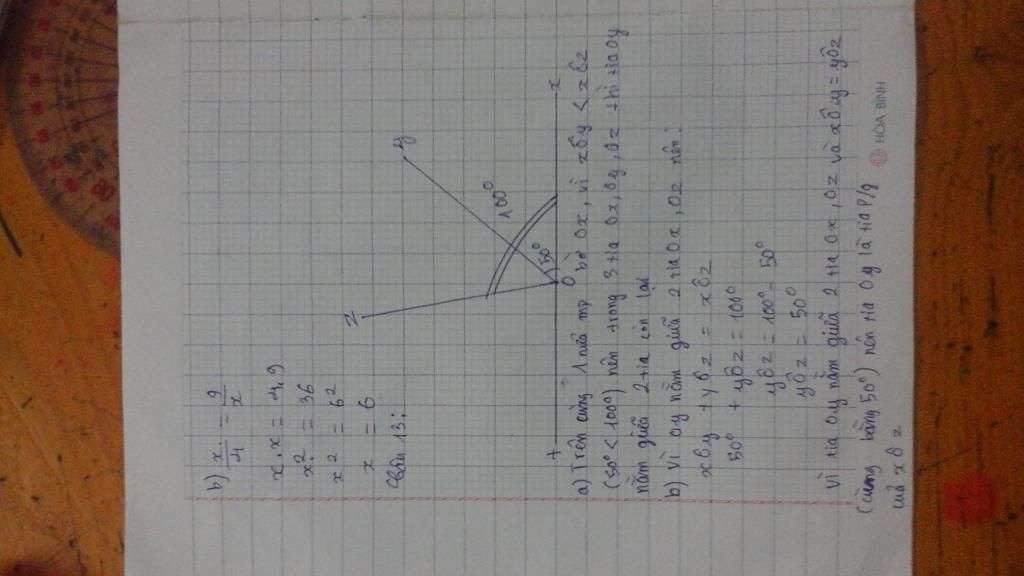 b) x/4 = 9/x
x.x = 4.9
x² = 36
x² = 6²
x = 6
Câu 13:
z
y
100°
50°
t
O
x
a) Trên cùng 1 nửa mp bờ Ox, vì xÔy < xÔz
(50° < 100°) nên trong 3 tia Ox, Oy, Oz thì tia Oy
nằm giữa 2 tia còn lại
b) Vì Oy nằm giữa 2 tia Ox, Oz nên:
xÔy + yÔz = xÔz
50° + yÔz = 100°
yÔz = 100° - 50°
yÔz = 50°
Vì tia Oy nằm giữa 2 tia Ox, Oz và xÔy = yÔz
(cùng bằng 50°) nên tia Oy là tia p/g
của xÔz
HÒA BÌNH